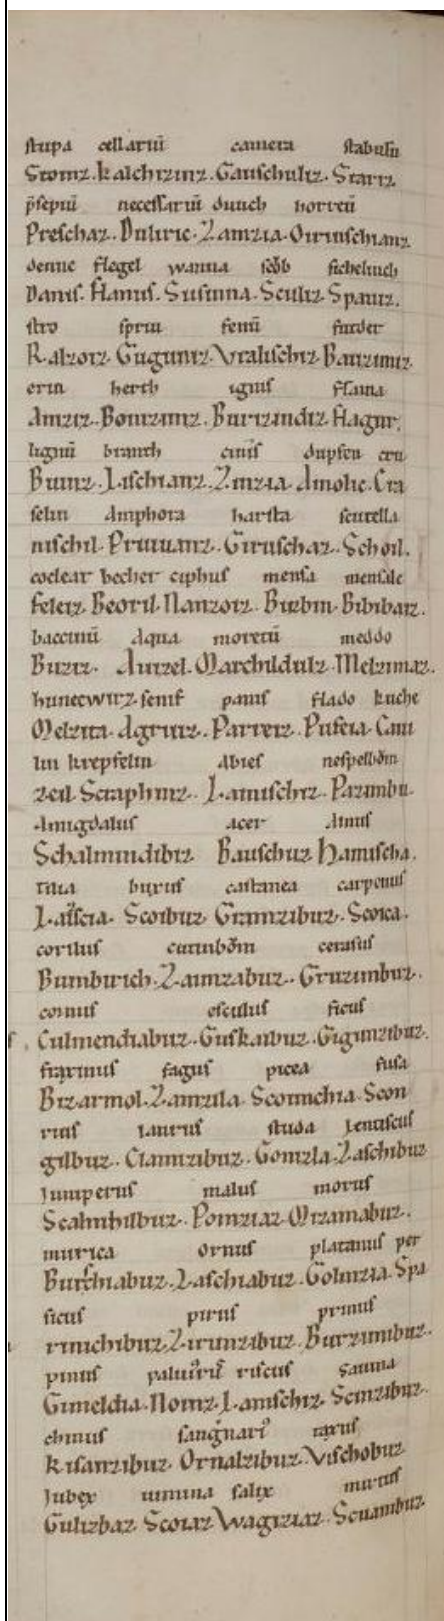 stupa cellariū camera stabulū
Stoinz. kalchizinz. Gauschuliz. Stariz
p̄sepiū necessariū duuch horreū
Preschaz. Duliric. Zamzia. Oirunschianz
denne flegel wanna scōb sicheluuch
Danis. Hanus. Susinna. Sculiz. Spauiz.
stro spriu fenū furder
Ralzoiz. Gugunız. Vralischiz. Bauzimiz
erin herth ignis flāma
Amziz. Bonizunz. Burizindiz. Hagur.
lignū branth cinis dupfen cru
Buinz. Lischianz. Zinzia. Amolic. Cra
selin Amphora harsta scutella
nischil. Priuuanz. Giruschaz. Schoil.
coclear becher ciphus mensa mensile
feleiz. Beoril. Nanzoiz. Birbin. Bibibaiz.
baccinū Aqua moretū meddo
Buziz. Aurzel. Marchildulz. Melzimaz.
hunecwirz. senif panis flado kuche
Melzita. Agruiz. Parreiz. Pufeia. Cani
lin krepfelin Abies nespelbōm
zeil Scraphinz. Lamischiz. Pazimbu
Amigdalus acer Alnus
Schalmindibiz Bauschuz Hamischa.
tilia buxus castanea carpenus
Lasscia. Scoibuz Gramzibuz. Scoica.
corilus cutinbōm cerasus
Bumbirich. Zaimzabuz. Gruzimbuz.
cornus esculus ficus
Culmendiabuz. Guskaibuz. Gigunzibuz.
fraxinus fagus picea fusa
Bizarmol. Zamzila. Scoinichia. Scon
rius laurus studa Lentiscus
gilbuz. Clamizibuz. Gonizla. Zaschibuz
Juniperus malus morus
Scalnihilbuz. Pomziaz. Mizamabuz.
murica Ornus platanus per
Burschiabuz. Zaschiabuz. Golinzia. Spa
sicus pirus prinus
rinichibuz. Zirunzibuz. Burzimibuz.
pinus riscus Sauina
Gimeldia. Noinz. Lamschiz. Scinzibuz.
chinus taxus
kisanzibuz. Ornalzibuz. Vischobuz
Jubex uimina salix mirtus
Gulizbaz Scoiaz Wagiziaz. Scuambuz